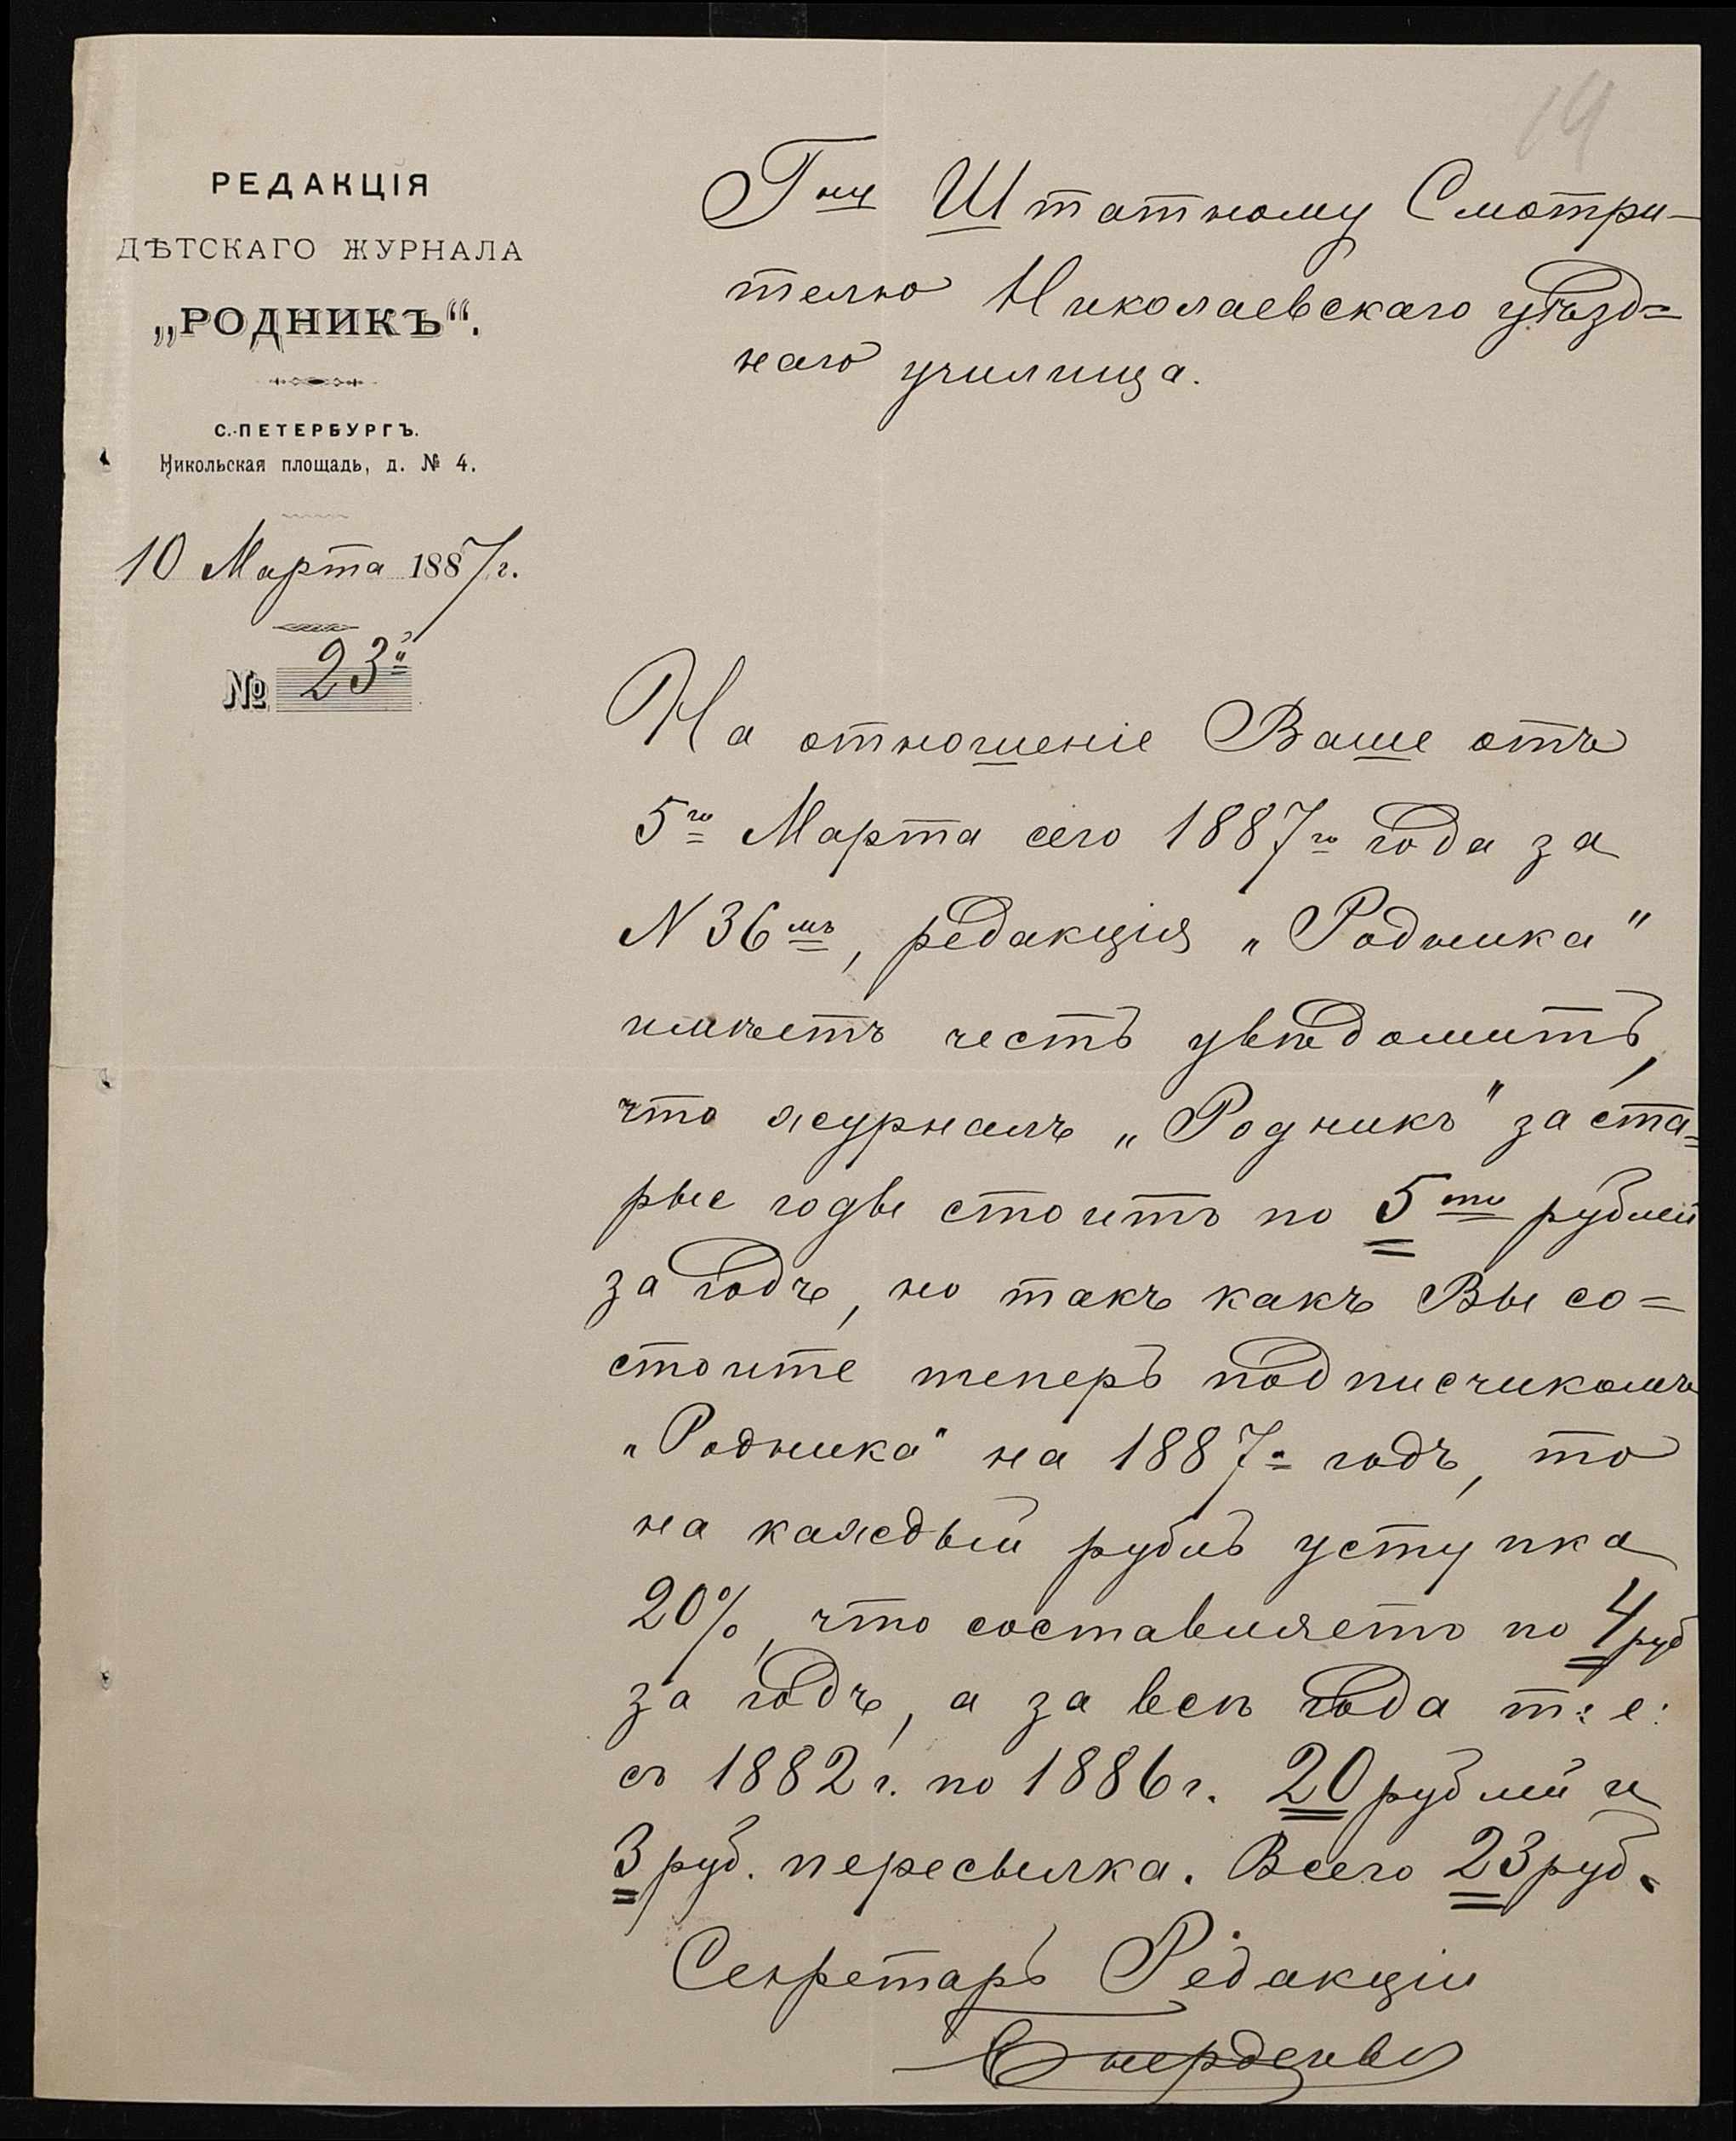 14
РЕДАКЦІЯ
ДѢТСКАГО ЖУРНАЛА
„РОДНИКЪ“.
С.-ПЕТЕРБУРГЪ.
Никольская площадь, д. № 4.
10 Марта 1887 г.
№ 23й
Гну Штатному Смотри-
телю Николаевскаго уѣзд=
наго училища.
На отношеніе Ваше отъ
5го Марта сего 1887го года за
N 36мъ, редакція „Родника”
имѣетъ честь увѣдомить,
что журналъ „Родникъ” за ста=
рые годы стоитъ по 5ти рублей
за годъ, но такъ какъ Вы со=
стоите теперь подписчикомъ
„Родника” на 1887й годъ, то
на каждый рубль уступка
20%, что составляетъ по 4 руб
за годъ, а за всѣ года т: е:
съ 1882 г. по 1886 г. 20 рублей и
3 руб. пересылка. Всего 23 руб.
Секретарь Редакціи